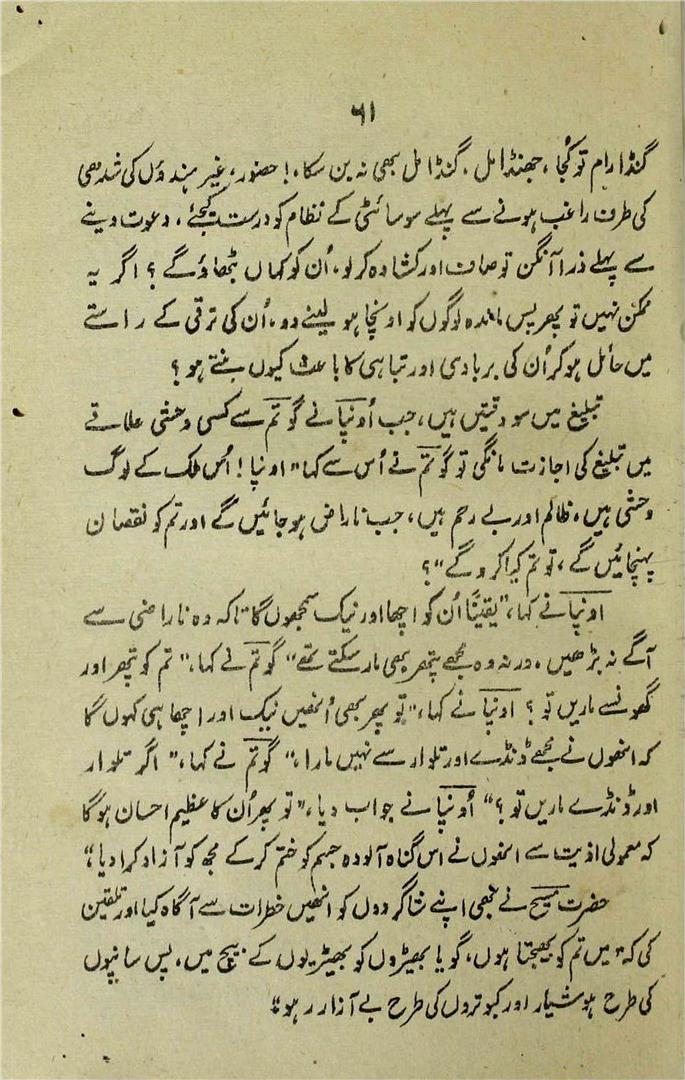 ۶۱
گنڈا رام تو کُجا، جھنڈا مل، گنڈا مل بھی نہ بن سکا،! حضور، غیر ہندوؤں کی شدھی
کی طرف راغب ہونے سے پہلے سوسائٹی کے نظام کو درست کیجئے، دعوت دینے
سے پہلے ذرا آنگن تو صاف اور کشادہ کر لو. اُن کو کہاں بٹھاؤ گے؟ اگر یہ
ممکن نہیں تو پھر پس ماندہ لوگوں کو اونچا ہو لینے دو. اُن کی ترقی کے راستے
میں حائل ہو کر اُن کی بربادی اور تباہی کا باعث کیوں بنتے ہو؟
تبلیغ میں سو دقتیں ہیں، جب اُونپا نے گوتم سے کسی وحشی علاقے
میں تبلیغ کی اجازت مانگی تو گوتم نے اُس سے کہا "اونپا! اُس ملک کے لوگ
وحشی ہیں، ظالم اور بے رحم ہیں، جب ناراض ہو جائیں گے اور تم کو نقصان
پہنچائیں گے، تو تم کیا کرو گے"؟
اونپا نے کہا، "یقیناً اُن کو اچھا اور نیک سمجھوں گا تاکہ وہ ناراضی سے
آگے نہ بڑھیں. ورنہ وہ مجھے پتھر بھی مار سکتے تھے" گوتم نے کہا، "تم کو پتھر اور
گھونسے ماریں تو؟ اونپا نے کہا، "تو پھر بھی اُنھیں نیک اور اچھا ہی کہوں گا
کہ انھوں نے مجھے ڈنڈے اور تلوار سے نہیں مارا،" گوتم نے کہا، "اگر تلوار
اور ڈنڈے ماریں تو؟" اُونپا نے جواب دیا، "تو پھر اُن کا عظیم احسان ہوگا
کہ معمولی اذیت سے انھوں نے اس گناہ آلودہ جسم کو ختم کر کے مجھ کو آزاد کرا دیا"
حضرت مسیح نے بھی اپنے شاگردوں کو انھیں خطرات سے آگاہ کیا اور تلقین
کی کہ "میں تم کو بھیجتا ہوں، گویا بھیڑوں کو بھیڑیوں کے بیچ میں، پس سانپوں
کی طرح ہوشیار اور کبوتروں کی طرح بے آزار رہو"